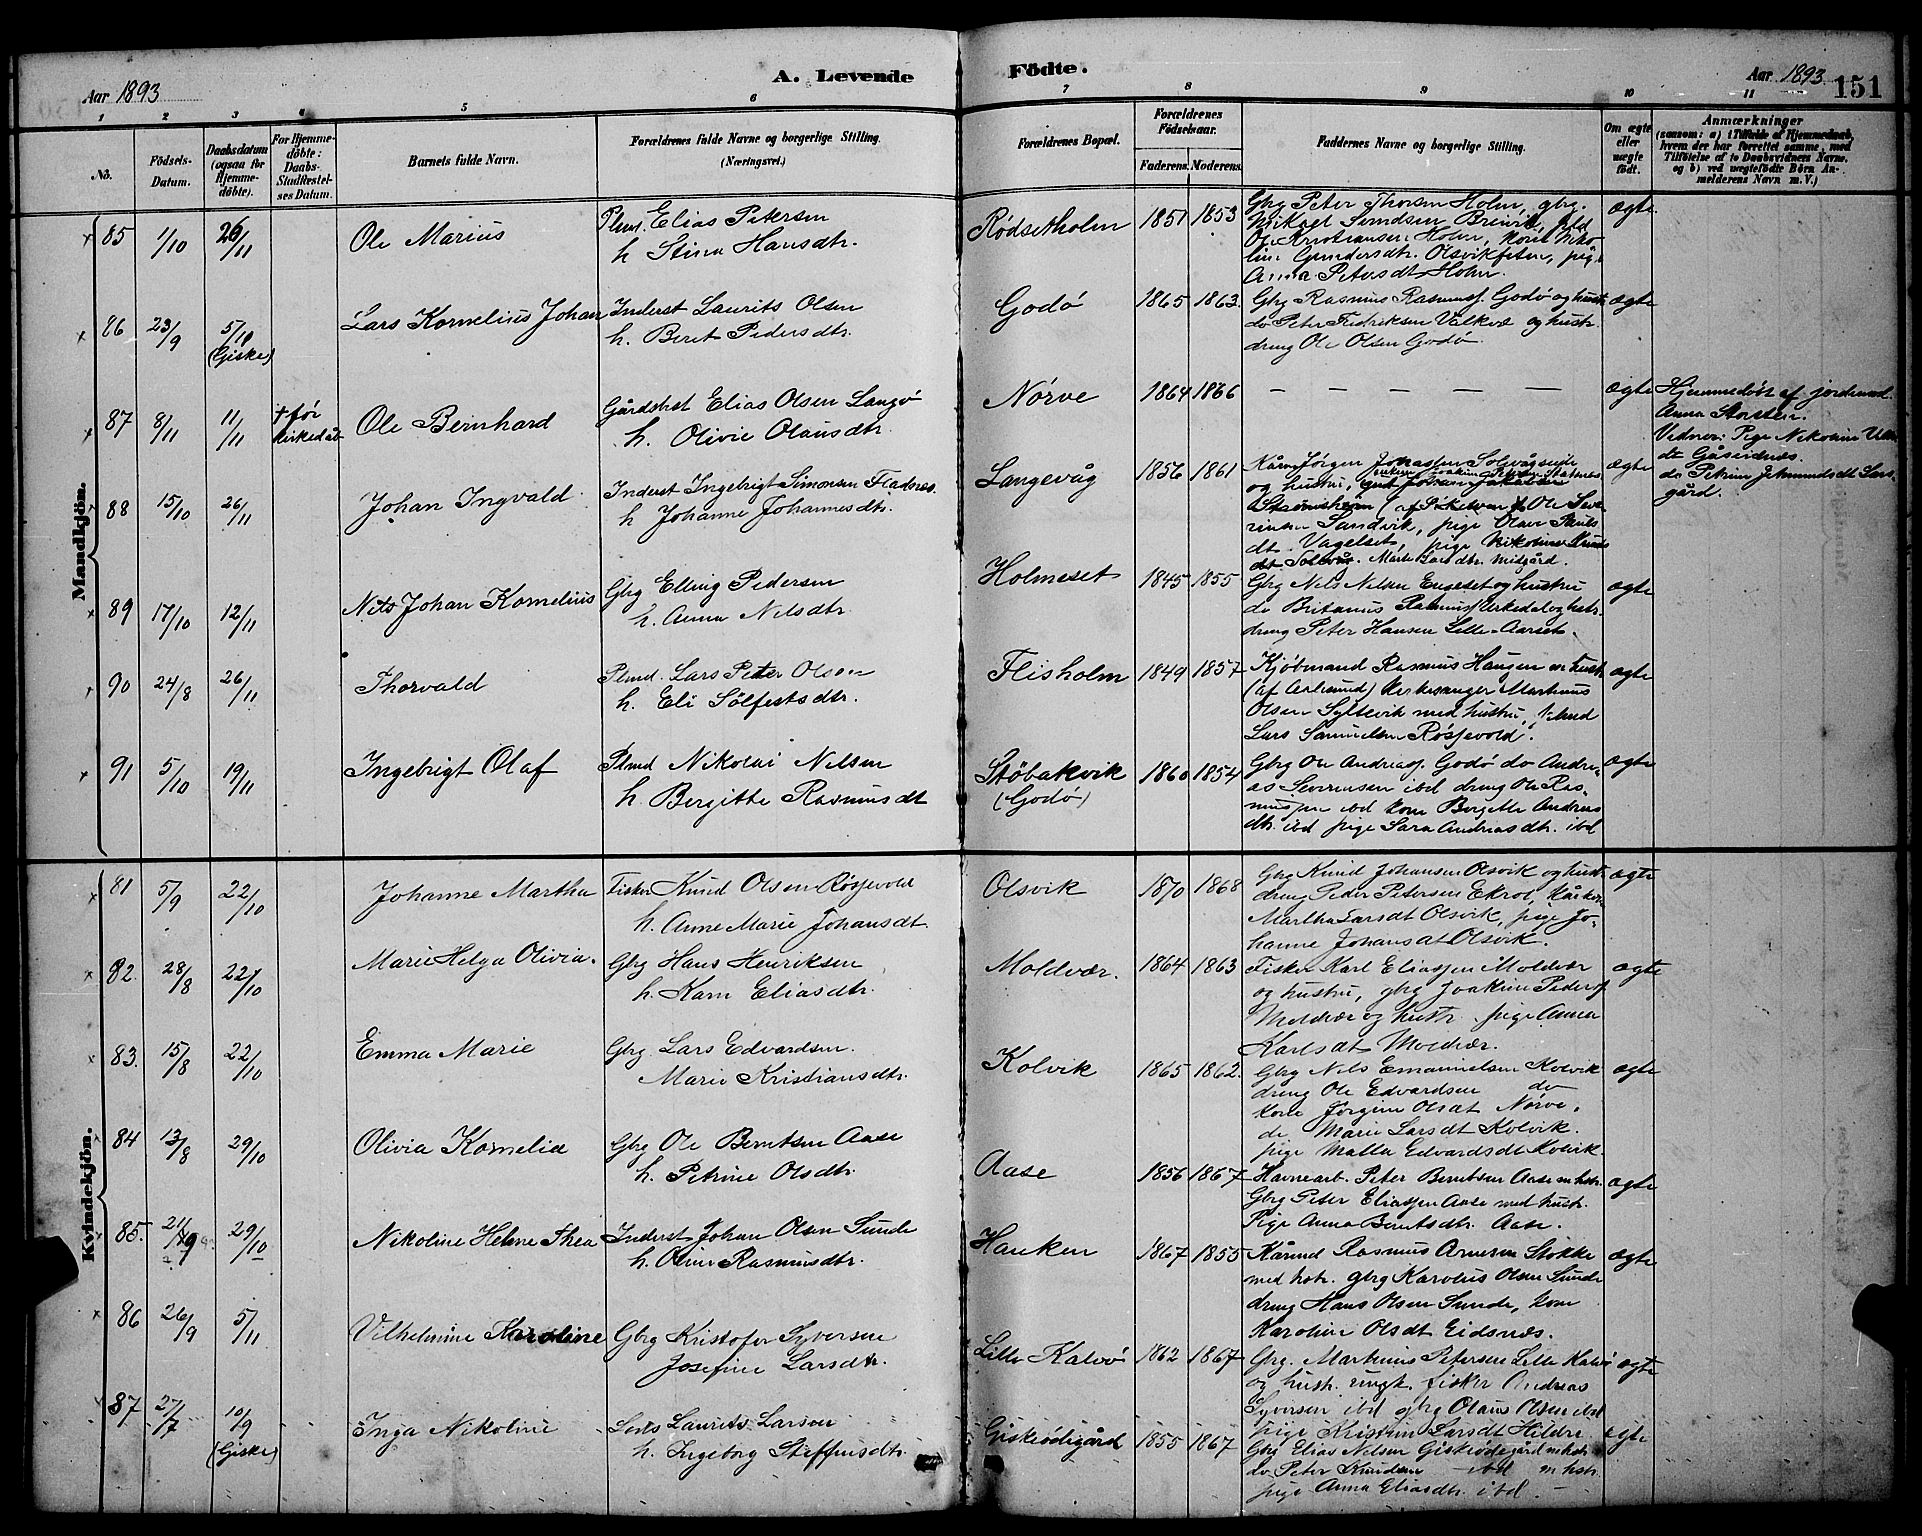 Aar 1893
A. Levende
Födte.
Aar 1893
151
1
2
3
4
5
6
7
8
9
10
11
No.
Födsels-
Datum.
Daabsdatum
(ogsaa for
Hjemme-
döbte).
For Hjemme-
döbte:
Daabs-
Stadfæstel-
ses Datum.
Barnets fulde Navn.
Forældrenes fulde Navne og borgerlige Stilling.
(Næringsvei.)
Forældrenes Bopæl.
Forældrenes
Födselsaar.
Faderens.
Moderens.
Faddernes Navne og borgerlige Stilling.
Om ægte
eller
uægte
født.
Anmærkninger
(saasom: a) i Tilfælde af Hjemmedaab,
hvem der har forrettet samme, med
Tilföielse af to Daabsvidners Navne,
og b) ved uægtefödte Börn An-
melderens Navn m. V.)
Mandkjön.
85 1/10 26/11 Ole Marius
Plmd. Elias Petersen
h Stina Hansdtr.
Rødsetholm 1851 1853
Gbrg Peter Thorsen Holm, gbrg.
Olsvikfeten, pige
Anna Petersdt Holm.
ægte
86 23/9 5/11 (Giske) Lars Kornelius Johan
Inderst Laurits Olsen
h. Beret Pedersdtr.
Godø 1865 1863.
Gbrg Rasmus Rasmusf. Godø og hustr.
do Peter Fredriksen Valkvæ og hustr.
dreng Ole Olsen Godø.
ægte
87 8/11 11/11 † før kirkedåb Ole Bernhard
Gårdsbst Elias Olsen Langø
h. Olivie Olausdtr.
Nørve 1864 1866
— — — — —
ægte
Hjemmedøbt af jordemd.
Anna
Vidner: Pige Nikoline
Gåseidnes.
do Petrine
gård.
88 15/10 26/11 Johan Ingvald
Inderst Ingebrigt Simonsen Fladnes.
h Johanne Johannesdtr.
Langevåg 1856 1861
og hustru,
Ole Seve-
rinsen Sandvik, pige Olave
dt. Vagelset, pige Nikoline
Midgård.
ægte
89 17/10 12/11 Nils Johan Kornelius
Gbrg Elling Pedersen
h. Anna Nilsdtr
Holmeset 1845 1855
Gbrg Nils Nilsen Engeset og hustru
do Britanus Rasmusf Kirkedal og hstr.
dreng Peter Hansen Lille-Aarset.
ægte
90 24/8 26/11 Thorvald
Plmd. Lars Peter Olsen
h. Eli Sölfestsdtr.
Flisholm 1849 1857
Kjøbmand Rasmus Haugen m. hustr
(af Aalesund) Kirkesanger Martinus
Olsen Syltevik med hustru,
Lars Samuelsen Røsjevold.
ægte
91 5/10 19/11 Ingebrigt Olaf
Plmd Nikolai Nilsen
h. Bergitte Rasmusdt
Støbakvik (Godø) 1860 1854
Gbrg Ole Andreasf. Godø do Andre-
as Severinsen ibd dreng Ole Ras-
mussen ibd kone Bergitte Andreas
dtr. ibd pige Sara Andreasdtr. ibd
ægte
Kvindekjön.
81 5/9 22/10 Johanne Martha
Fisker Knud Olsen Røsjevold
h. Anne Marie Johansdt.
Olsvik 1870 1868
Gbrg Knud Johansen Olsvik og hust.
dreng Peder Petersen Ekrol,
Martha Larsdt Olsvik, pige Jo-
hanne Johansdt Olsvik.
ægte
82. 28/8 22/10 Marie Helga Olivia.
Gbrg Hans Henriksen
h. Karn Eliasdtr.
Moldvær. 1864 1863
Fisker Karl Eliassen Moldvær
og hustru, gbrg Joakim Pedersf
Moldvær og hustr. pige Anna
Karlsdt Moldvær.
ægte
83. 15/8 22/10 Emma Marie
Gbrg Lars Edvardsen
Marie Kristiansdtr.
Kolvik 1865 1862.
Gbrg Nils Emanuelsen Kolvik
dreng Ole Edvardsen do
kone Jørgine Olsdt Nørve.
do Marie Larsdt Kolvik.
pige Malla Edvardsdt Kolvik.
ægte
84 13/8 29/10 Olivia Kornelia
Gbrg Ole Berntsen Aase
h. Petrine Olsdtr.
Aase 1856 1867
Havnearb. Peter Berntsen Aase m hstr.
Gbrg Peter Eliassen Aase med hustr.
Pige Anna Berntsdtr. Aase.
ægte
85. 21/9 29/10 Nikoline Helene Thea
Inderst Johan Olsen Sunde
h. Oline Rasmusdtr.
Hanken 1867 1855
Kårmd Rasmus Arnesen Stokke
med hstr. gbrg Karolus Olsen Sunde
dreng Hans Olsen Sunde, kone
Karoline Olsdt Eidsnæs.
ægte
86 26/9 5/11 Vilhelmine Karoline
Gbrg Kristofer Syversen
Josefine Larsdtr.
Lille Kalvø 1862 1867
Gbrg. Martinus Petersen Lille Kalvø
og hustr. ungk. fisker Andreas
Syversen ibd gbrg Olaus Olsen ibd
Pige Kristine Larsdt Hildre.
ægte
87 27/7 10/9 (Giske) Inga Nikoline
Lods Laurits Larsen
h. Ingeborg Steffensdtr.
Giskeødegård 1855 1867
Gbrg Elias Nilsen Giskeødegård m hstr
do Peter Knudsen ibd m hstr.
pige Anna Eliasdtr. ibd. —
ægte